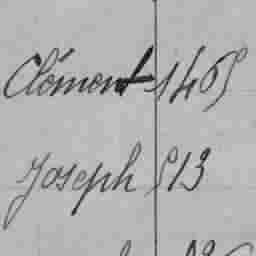 Clément 1465
Joseph 513